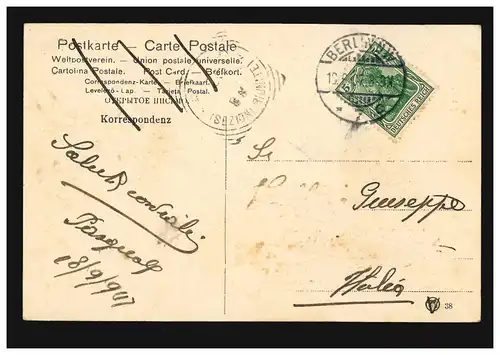 Postkarte — Carte Postale
Weltpostverein. — Union postale universelle.
Cartolina Postale. Post Card — Brefkort.
Correspondenz-Karte — Briefkaart.
Levelező-Lap. — Tarjeta Postal.
ОТКРЫТОЕ ПИСЬМО
Korrespondenz
BERLIN
DEUTSCHES REICH
Saluti cordiali
Pasquale
18/9/907
Giuseppe
Italia
38